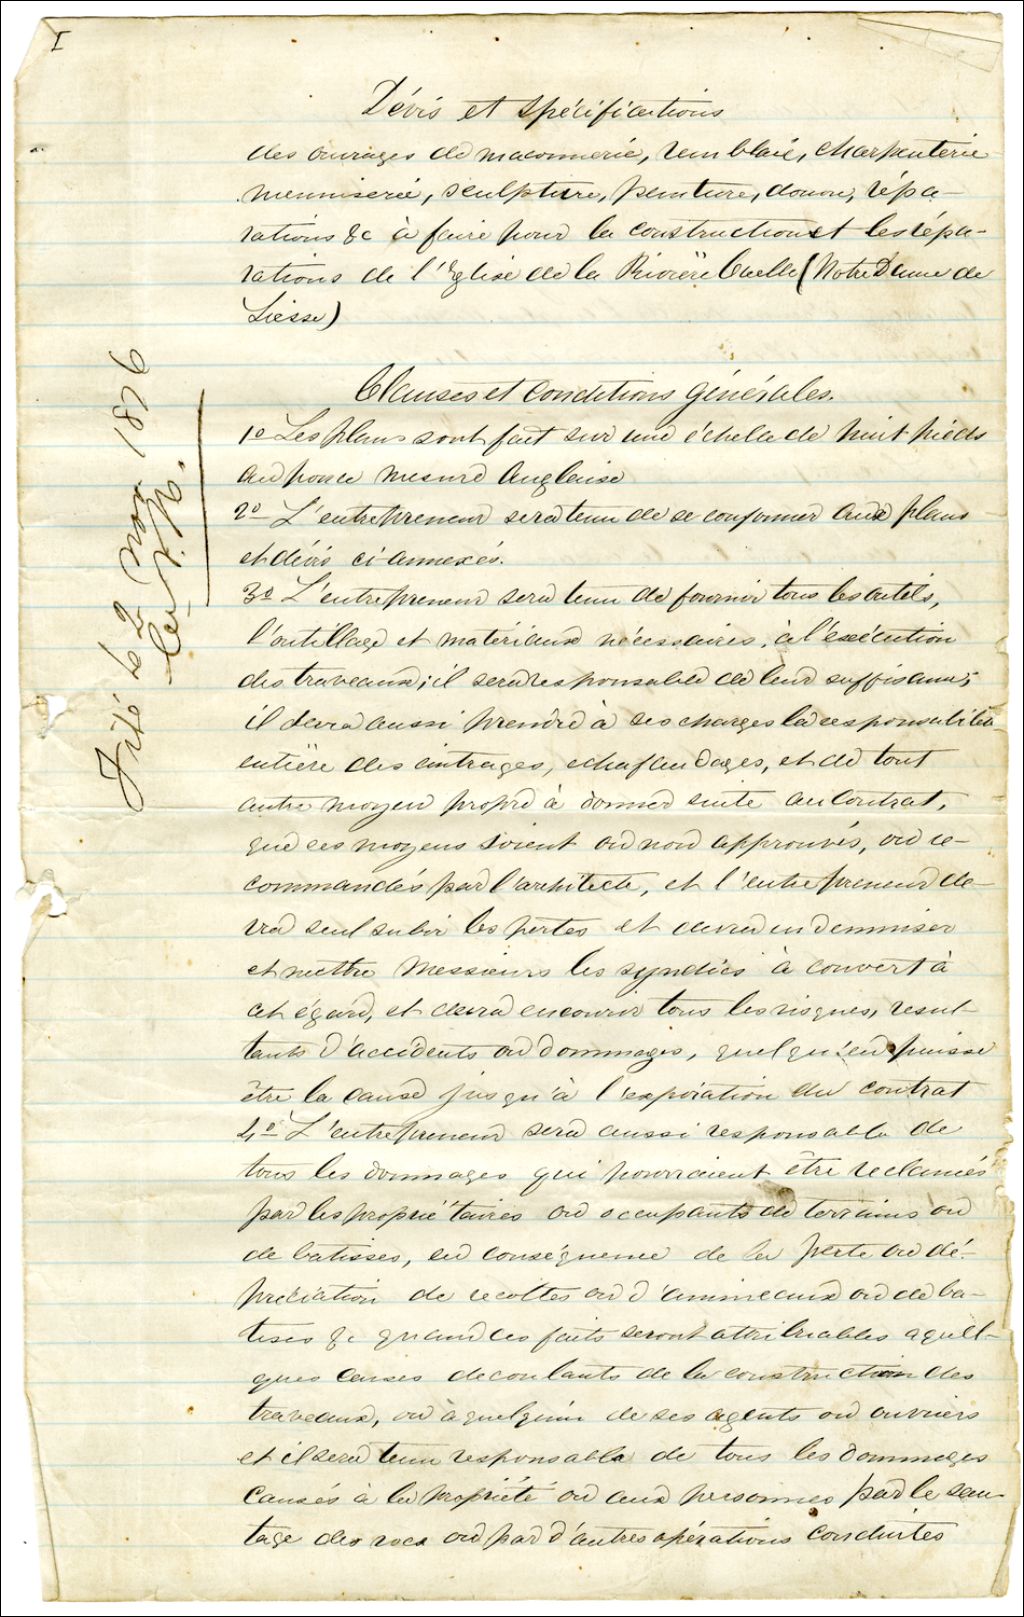 I
Dévis et spécifications
des ouvrages de maconnerie, remblaie, charpenterie
menuiserie, sculpture, peinture, dorure, répa-
rations &c à faire pour la construction et les répa-
rations de l'Eglise de la Rivière Ouelle (Notre Dame de
Liesse)
Clauses et conditions générales.
1o Les plans sont fait sur une échele de huit pieds
au pouce mesure Anglaise
2o L'entrepreneur sera tenu de se conformer aux plans
et dévis ci annexés.
3o L'entrepreneur sera tenu de fournir tous les outils,
l'outillage et matériaux nécessaires, à l'exécution
des travaux; il sera responsable de leur suffisance;
il devra aussi prendre à ses charges la responsabilité
entière des cintrages, echafaudages, et de tout
autre moyen propre à donner suite au Contrat,
que ces moyens soient ou non approuvés, ou re-
commandés par l'architecte, et l'entrepreneur de-
vra seul subir les pertes et devra indemniser
et mettre Messieurs les syndics à couvert à
cet égard, et devra encourir tous les risques, resul-
tants d'accidents ou dommages, quelqu'en puisse
être la cause jusqu'à l'expiration du contrat
4o L'entrepreneur sera aussi responsable de
tous les dommages qui pourraient être reclamés
par les propriétaires ou occupants de terrains ou
de batisses, en conséquence de la perte ou dé-
preciation de recoltes ou d'animeaux ou de ba-
tises &c quand ces faits seront attribuables a quel-
ques causes decoulants de la construction des
traveaux, ou à quelqu'un de ses agents ou ouvriers
et il sera tenu responsable de tous les dommages
causés à la propriété ou aux personnes par le sau-
tage des rocs ou par d'autres opérations conduites
Fité le 2 Nov 1876